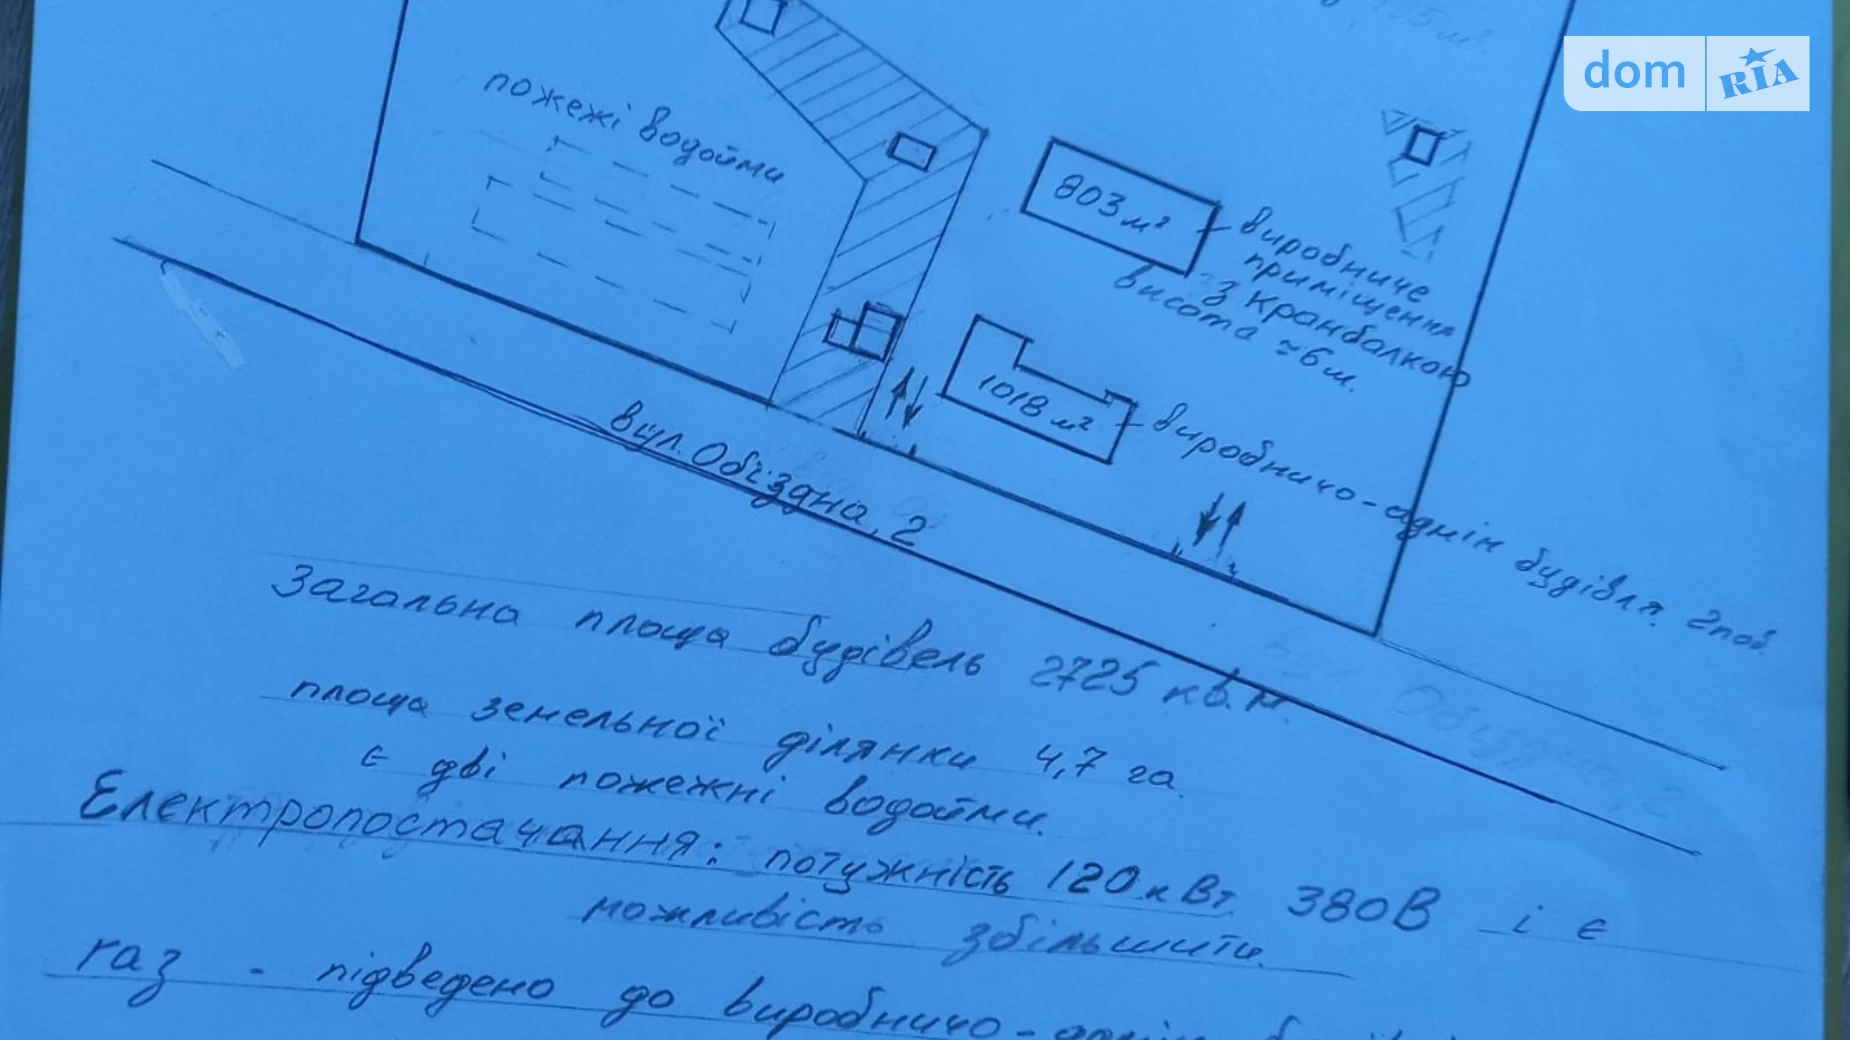 dom RIA
пожежі водойми
803 м²
виробниче
приміщення
з кранбалкою
висота ≈6м.
1018 м²
виробничо-адмін будівля. 2пов.
вул. Об'їздна, 2
Загальна площа будівель 2725 кв.м.
площа земельної ділянки 4,7 га.
є дві пожежні водойми.
Електропостачання: потужність 120 кВт 380В і є
можливість збільшити.
газ - підведено до виробничо-адмін